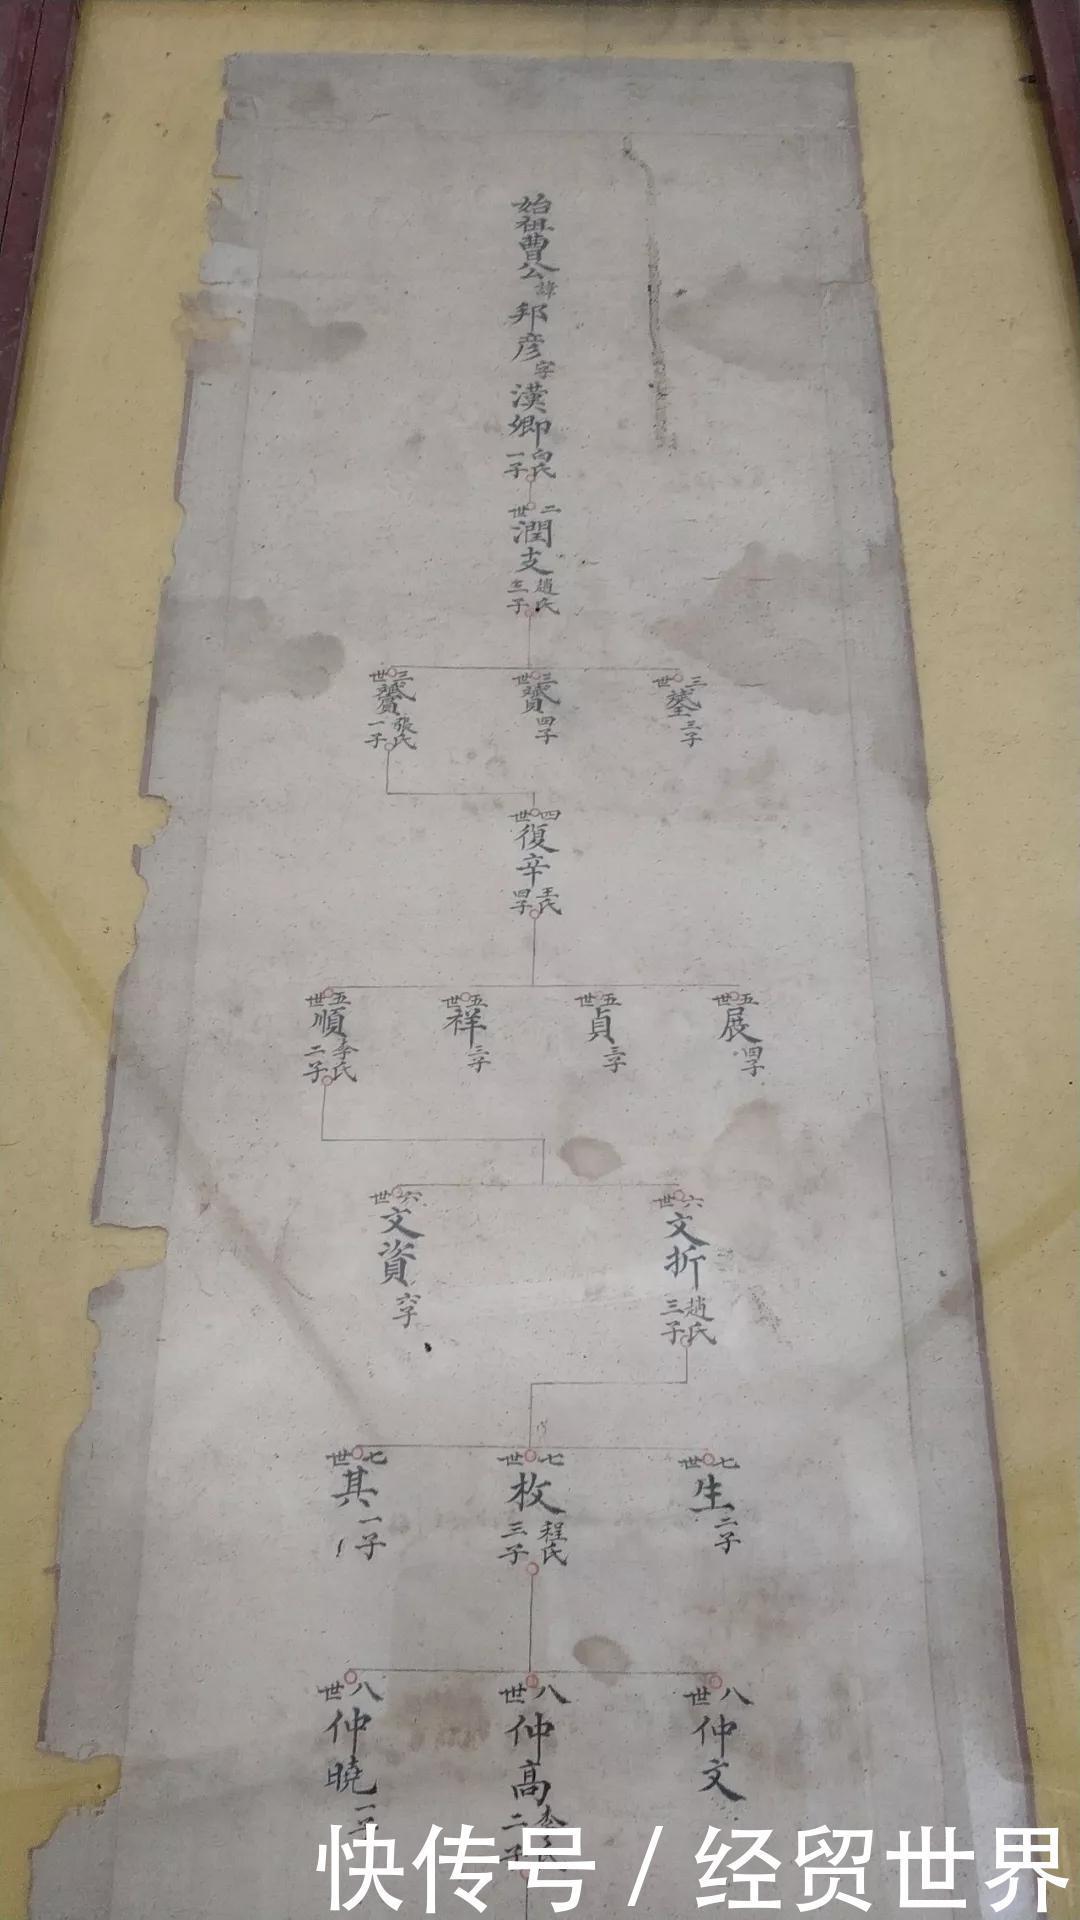 始祖曹公諱邦彦字漢卿白氏一子
二世潤支趙氏三子
三世 三子
三世 四子
三世 張氏一子
四世復辛王氏四子
五世展四子
五世貞三子
五世祥三子
五世順李氏二子
六世文折趙氏三子
六世文資六子
七世生二子
七世枚程氏三子
七世其一子
八世仲文
八世仲高李氏二子
八世仲曉一子
快传号/经贸世界